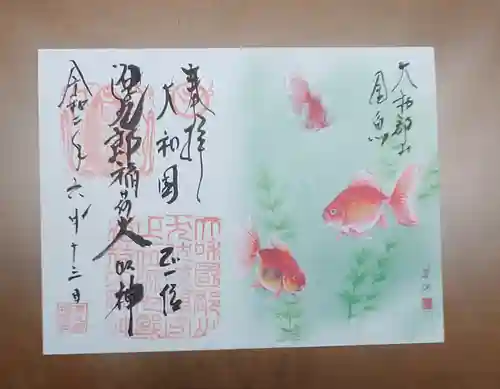 大和郡山
金魚
奉拝
大和國 正一位
源九郎稲荷大明神
令和二年六月十三日